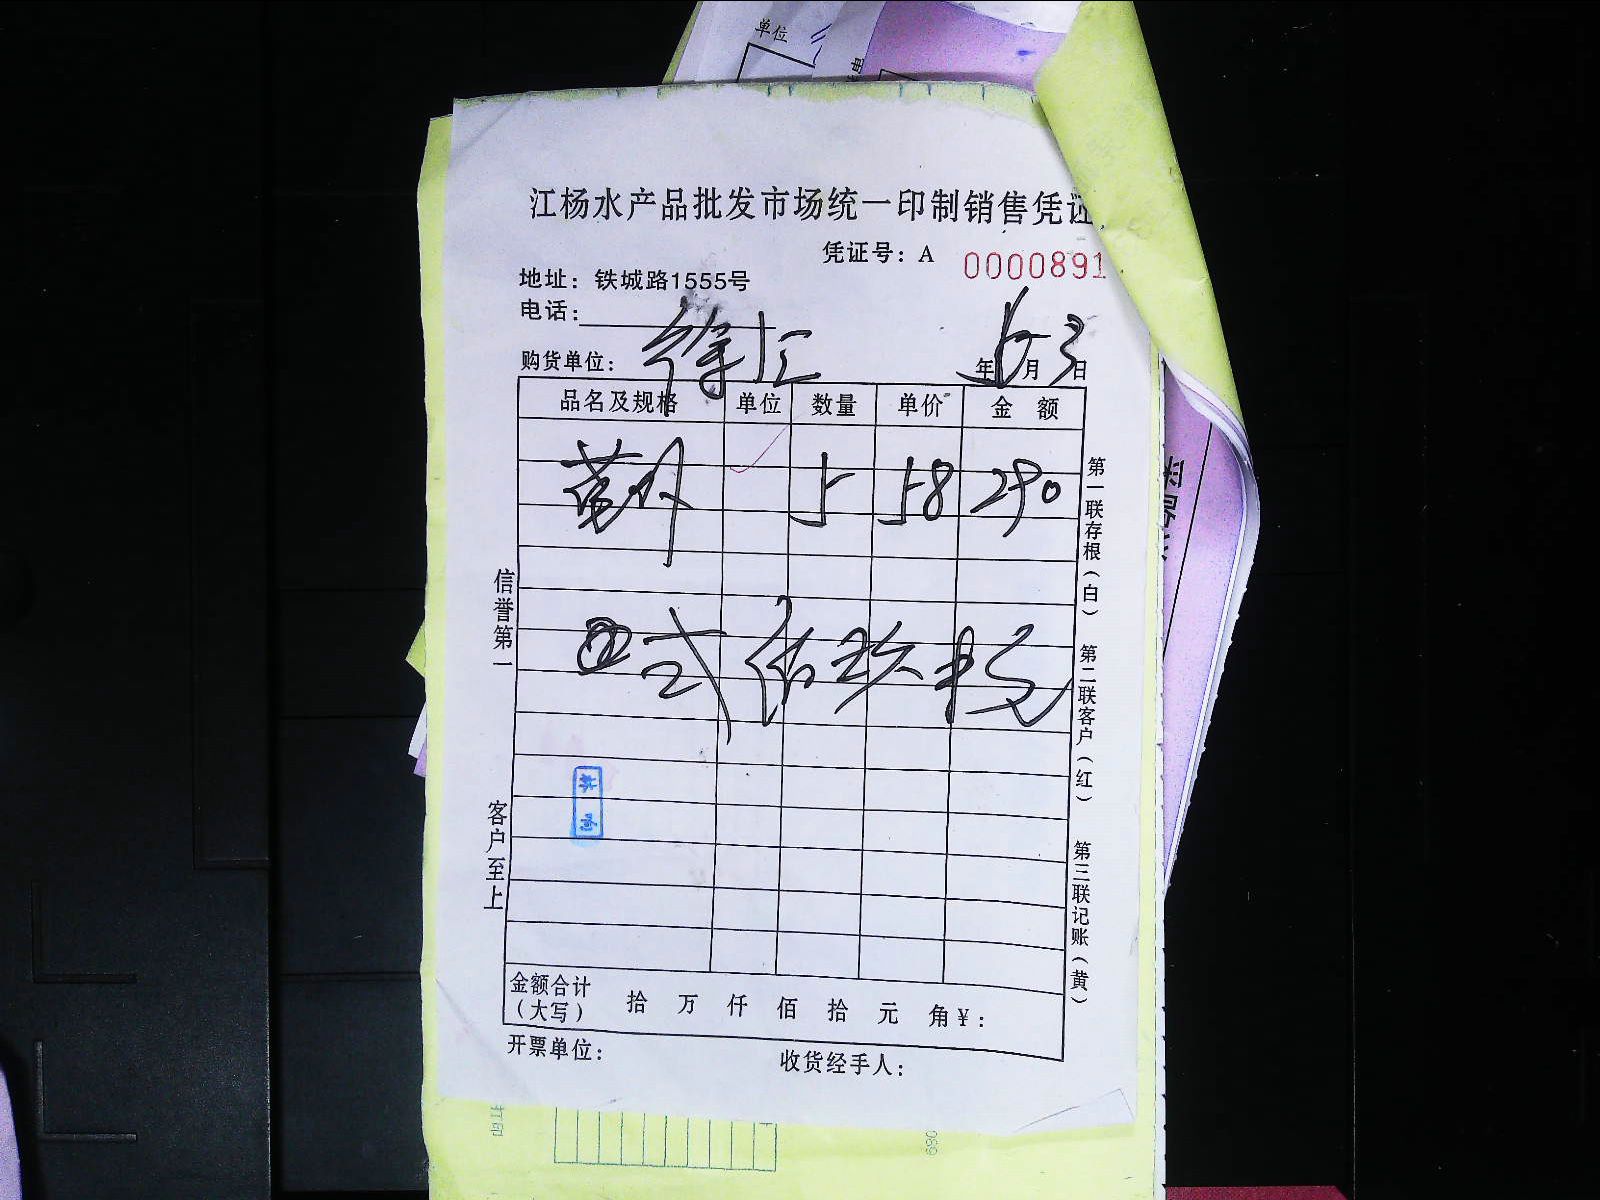 单位
江杨水产品批发市场统一印制销售凭证
凭证号：A 0000891
地址：铁城路1555号
电话：
购货单位：徐汇 年 5 月 3 日
品名及规格 单位 数量 单价 金额
5 58 290
贰佰玖拾元
信誉第一
客户至上
第一联存根（白）
第二联客户（红）
第三联记账（黄）
金额合计（大写） 拾 万 仟 佰 拾 元 角 ¥：
开票单位： 收货经手人：